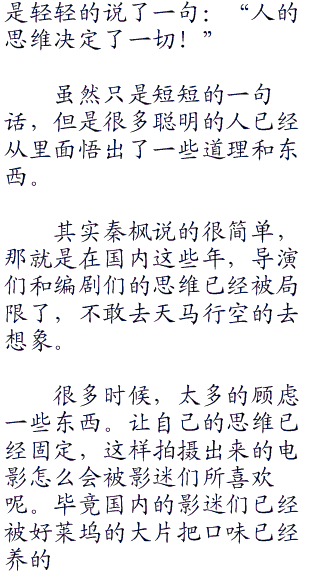 是轻轻的说了一句：“人的
思维决定了一切！”
虽然只是短短的一句
话，但是很多聪明的人已经
从里面悟出了一些道理和东
西。
其实秦枫说的很简单，
那就是在国内这些年，导演
们和编剧们的思维已经被局
限了，不敢去天马行空的去
想象。
很多时候，太多的顾虑
一些东西。让自己的思维已
经固定，这样拍摄出来的电
影怎么会被影迷们所喜欢
呢。毕竟国内的影迷们已经
被好莱坞的大片把口味已经
养的